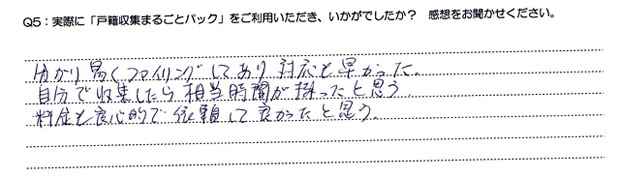 Q5：実際に「戸籍収集まるごとパック」をご利用いただき、いかがでしたか？ 感想をお聞かせください。
分かり易くファイリングしてあり対応も早かった。
自分で収集したら相当時間が掛ったと思う。
料金も良心的で依頼して良かったと思う。